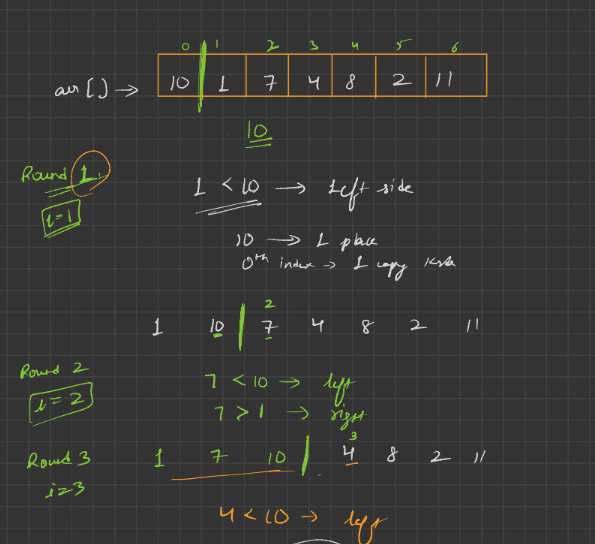 0 1 2 3 4 5 6
arr [] → 10 1 7 4 8 2 11
10
Round 1
i=1
1 < 10 → Left side
10 → 1 place
0th index → 1 copy krde
2
1 10 7 4 8 2 11
Round 2
7 < 10 → left
i = 2
7 > 1 → right
3
Round 3 1 7 10 4 8 2 11
i=3
4 < 10 → left